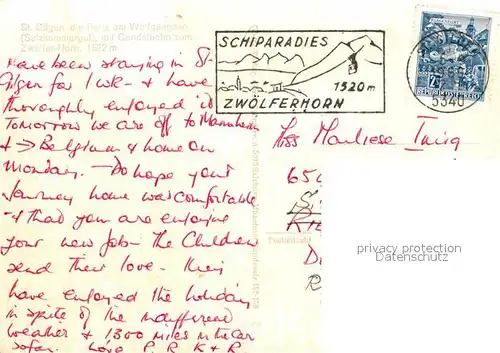 St. Gilgen, die Perle am Wolfgangsee
(Salzkammergut), mit Gondelbahn zum
Zwölfer-Horn, 1522 m
Have been staying in St-
Gilgen for 1 wk - & have
thoroughly enjoyed it
Tomorrow we are off to Mannheim
& → Belgium & home on
Monday. - Do hope your
Journey home was comfortable
& that you are enjoying
your new job - The Children
send their love - they
have enjoyed the holiday
in spite of the indifferent
weather & 1300 miles in the car
so far. Love P. R K & R.
SCHIPARADIES
1520 m
ZWÖLFERHORN
5340
REPUBLIK ÖSTERREICH
Miss
650
Postleitzahl
privacy protection
Datenschutz